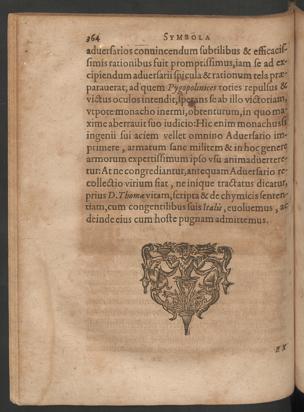 364 SYMBOLA
aduersarios conuincendum subtilibus & efficacis-
simis rationibus suit promptissimus, iam se ad ex-
cipiendum aduersarii spicula & rationum tela præ-
parauerat; ad quem Pygopolinices toties repulsus &
victus oculos intendit, sperans se ab illo victoriam,
vtpote monacho inermi, obtenturum, in quo ma-
xime aberrauit suo iudicio: Hic enim monachus si
ingenii sui aciem vellet omnino Aduersario im-
primere, armatum sane militem & in hoc genere
armorum expertissimum ipso vsu animaduertere-
tur: At ne congrediantur, antequam Aduersario re-
collectio virium fiat, ne inique tractatus dicatur,
prius D. Thomæ vitam, scripta & de chymicis senten-
tiam, cum congentilibus suis Italis, euoluemus, ac
deinde eius cum hoste pugnam admittemus.
EX